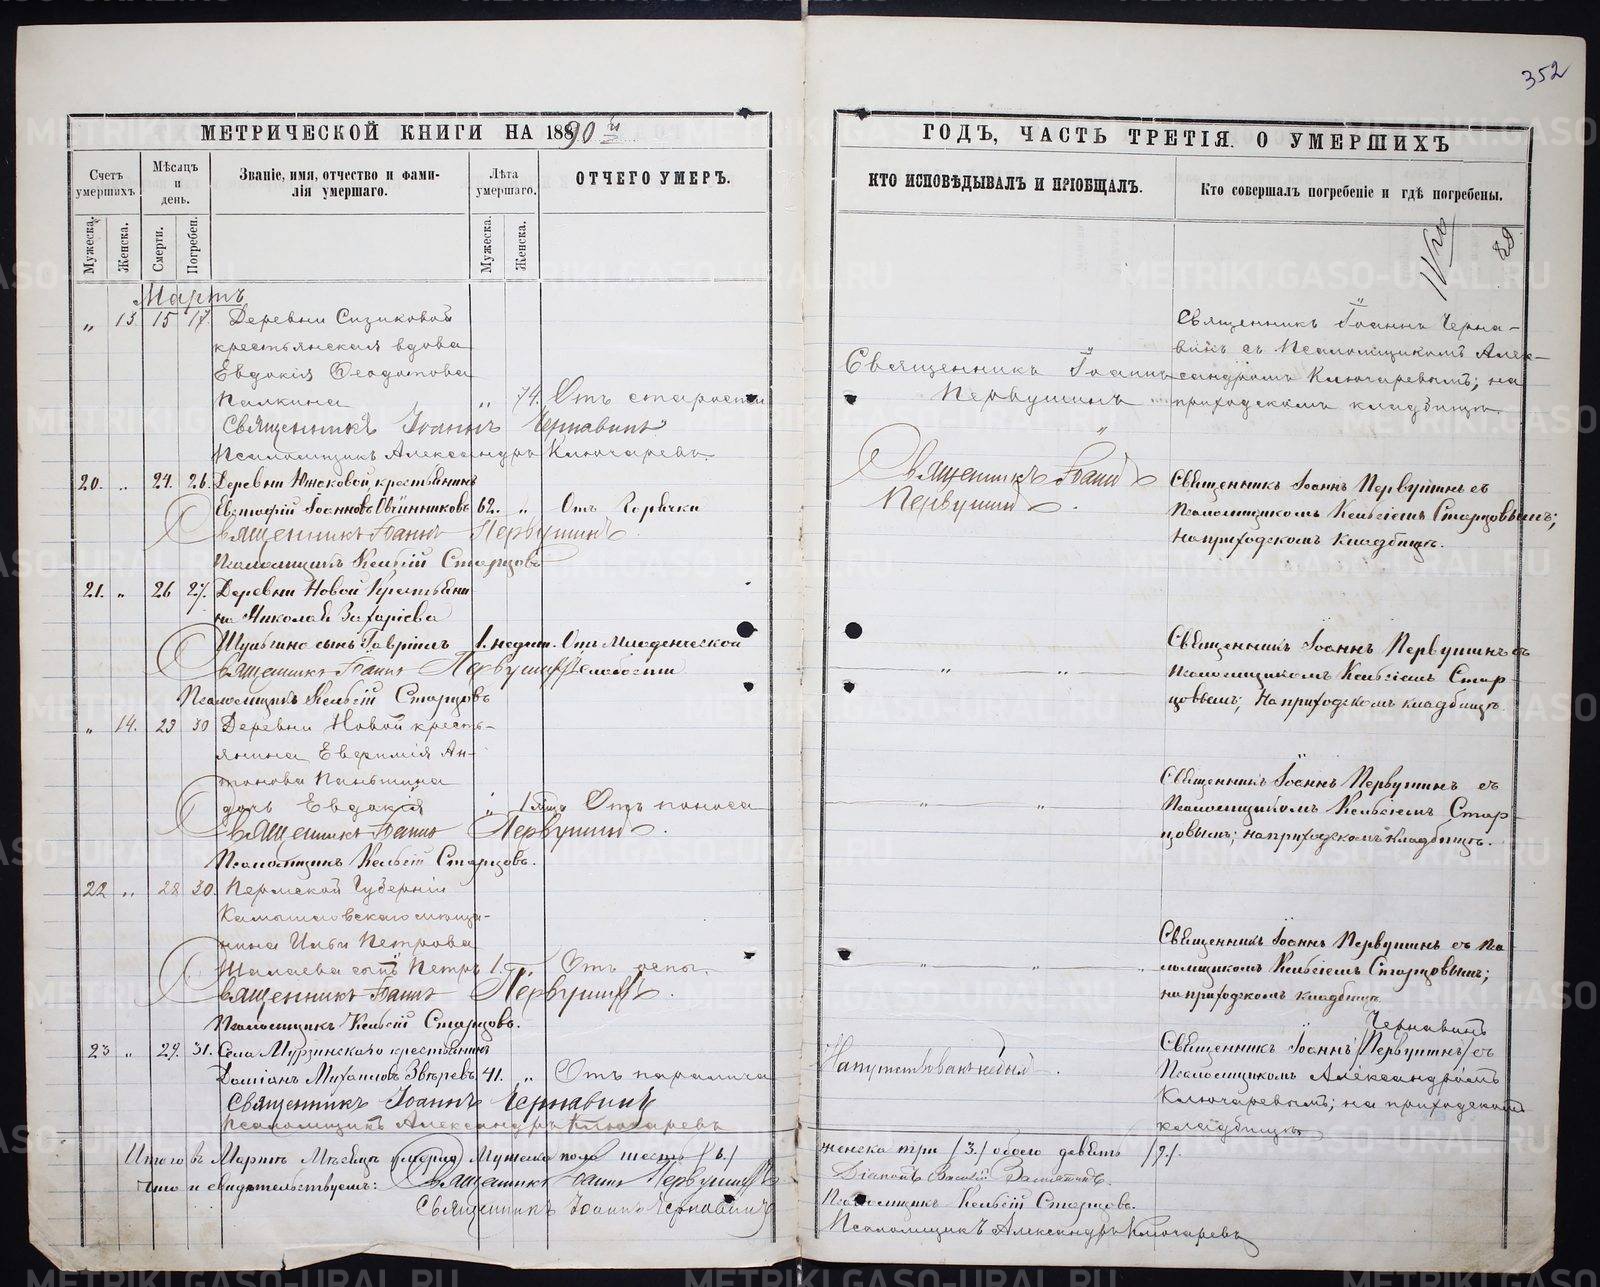 352
МЕТРИЧЕСКОЙ КНИГИ НА 1890 й
Счетъ умершихъ.
Мѣсяцъ и день.
Званіе, имя, отчество и фами-
лія умершаго.
Лѣта умершаго.
ОТЧЕГО УМЕРЪ.
Мужеска.
Женска.
Смерти.
Погребен.
Мужеска.
Женска.
Мартъ
„ 13. 15 17. Деревни Сизиковой
крестьянская вдова
Евдокія Ѳеодотова
Палкина „ 74. Отъ старости
Священникъ Іоаннъ Чернавинъ
Псаломщикъ Александръ Ключаревъ.
20. „ 24. 26. Деревни Южаковой, крестьянинъ
Евстафій Іоанновъ Овчинниковъ 62. „ Отъ Горячки
Священникъ Іоаннъ Первушинъ.
Псаломщикъ Старцовъ
21. „ 26 27. Деревни Новой Крестьяни
на Николая Захаріева
сынъ Гавріилъ 1. недѣл. Отъ Младенческой
Священникъ Іоаннъ Первушинъ слабости
Псаломщикъ Старцовъ
„ 14. 23 30 Деревни Новой кресть-
янина Евфимія Ан-
тонова Паньшина
дочь Евдокія „ Отъ поноса
Священникъ Іоаннъ Первушинъ.
Псаломщикъ Старцовъ.
22 „ 28 30. Пермской Губерніи
Камышловскаго мѣща-
нина Ильи Петрова
Шалаева сынъ Петръ 1. „ Отъ оспы.
Священникъ Іоаннъ Первушинъ.
Псаломщикъ Старцовъ.
23 „ 29. 31. Села Мурзинскаго крестьянинъ
Даміанъ Михаиловъ Звѣревъ 41. „ Отъ паралича
Священникъ Іоаннъ Чернавинъ
Псаломщикъ Александръ Ключаревъ
Итого въ Мартѣ Мѣсяцѣ умерло Мужеска пола шесть /6./
Что и свидѣтельствуемъ: Священникъ Іоаннъ Первушинъ
Священникъ Іоаннъ Чернавинъ
ГОДЪ, ЧАСТЬ ТРЕТІЯ. О УМЕРШИХЪ
КТО ИСПОВѢДЫВАЛЪ И ПРІОБЩАЛЪ.
Кто совершалъ погребеніе и гдѣ погребены.
Священникъ Іоаннъ
Первушинъ
Священникъ Іоаннъ Черна-
винъ съ Псаломщикомъ Алек-
сандромъ Ключаревымъ; на
приходскомъ кладбищѣ.
Священникъ Іоаннъ
Первушинъ.
Священникъ Іоаннъ Первушинъ съ
Псаломщикомъ Старцовымъ;
На приходскомъ кладбищѣ.
„ „
Священникъ Іоаннъ Первушинъ съ
Псаломщикомъ Стар-
цовымъ; На приходскомъ кладбищѣ.
„ „
Священникъ Іоаннъ Первушинъ съ
Псаломщикомъ Стар-
цовымъ; на приходскомъ кладбищѣ.
„ „ „
Священникъ Іоаннъ Первушинъ съ Пса-
ломщикомъ Старцовымъ;
на приходскомъ кладбищѣ.
Напутствованъ не былъ.
Чернавинъ
Священникъ Іоаннъ /Первушинъ/ съ
Псаломщикомъ Александромъ
Ключаревымъ; на приходскомъ
кладбищѣ
женска три /3./ обоего девять /9./
Діаконъ Василій
Псаломщикъ Старцовъ.
Псаломщикъ Александръ Ключаревъ
METRIKI.GASO-URAL.RU